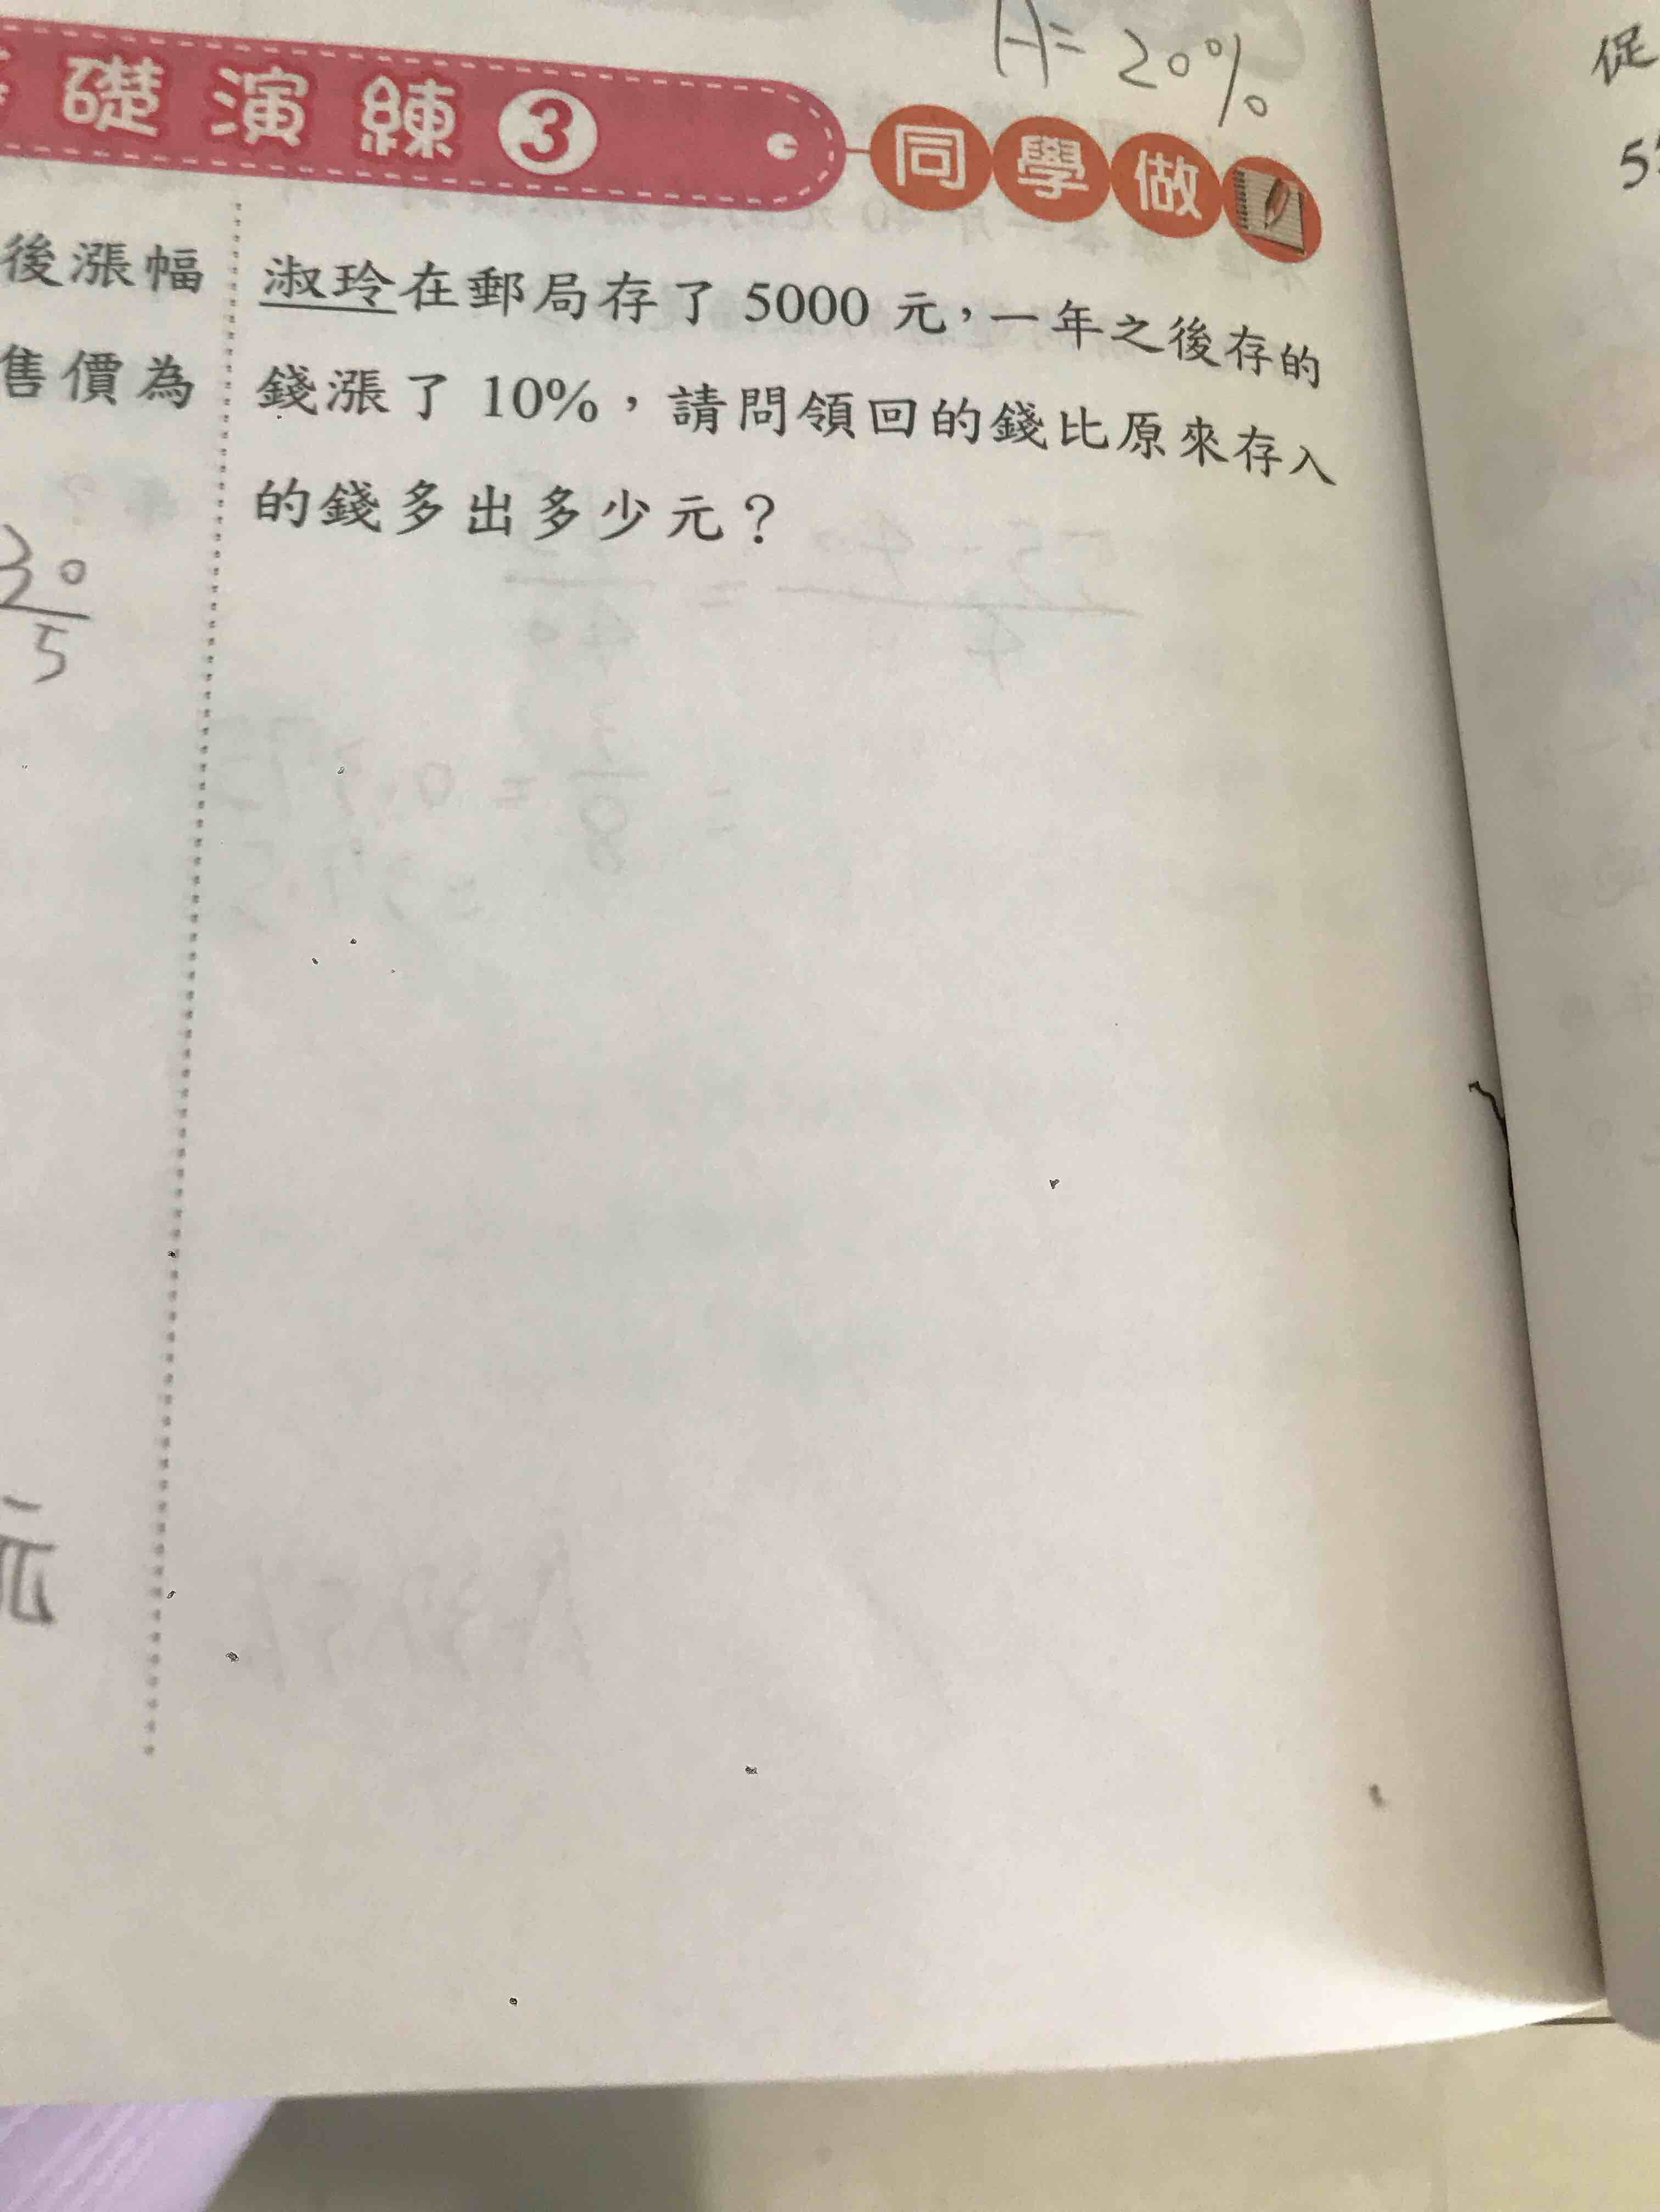 A= 20%
礎演練3
同學做
後漲幅
售價為
30
5
元
淑玲在郵局存了 5000 元，一年之後存的
錢漲了 10%，請問領回的錢比原來存入
的錢多出多少元？
促